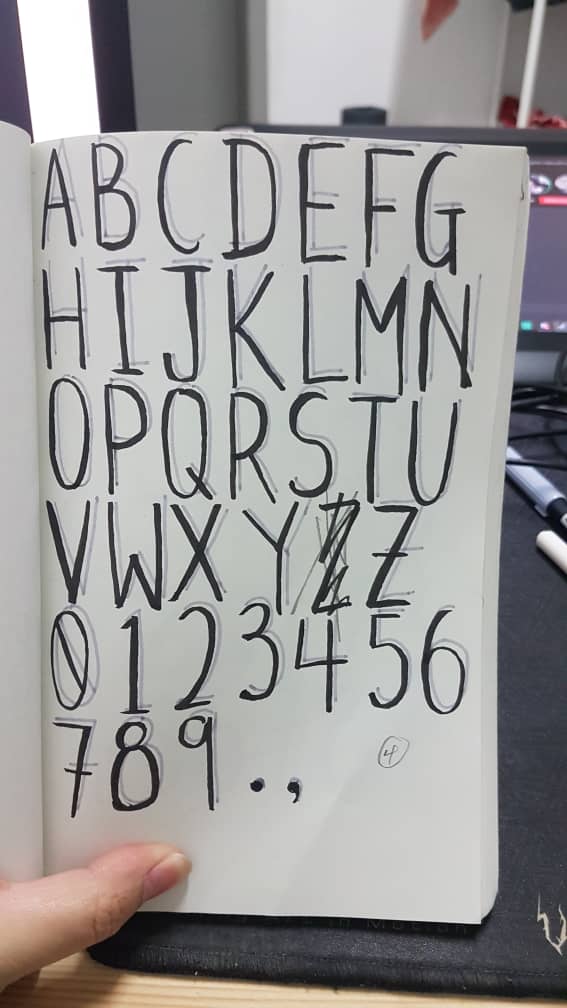 ABCDEFG
HIJKLMN
OPQRSTU
VWXYZ
0123456
789.,
4